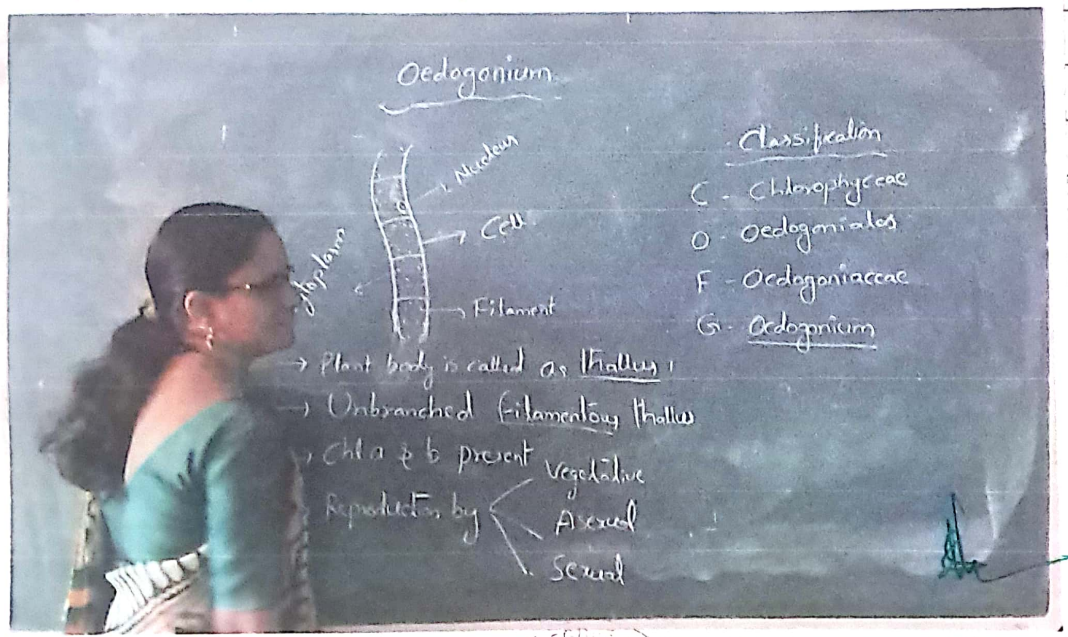 Oedogonium
Nucleus
Cell
Filament
→ Plant body is called as Thallus
→ Unbranched filamentous thallus
→ Chl a & b present
Reproduction by
Vegetative
Asexual
Sexual
Classification
C - Chlorophyceae
O - Oedogoniales
F - Oedogoniaceae
G - Oedogonium